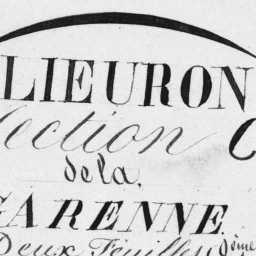 LIEURON
Section C
de la
GARENNE
Deux Feuilles 9ème